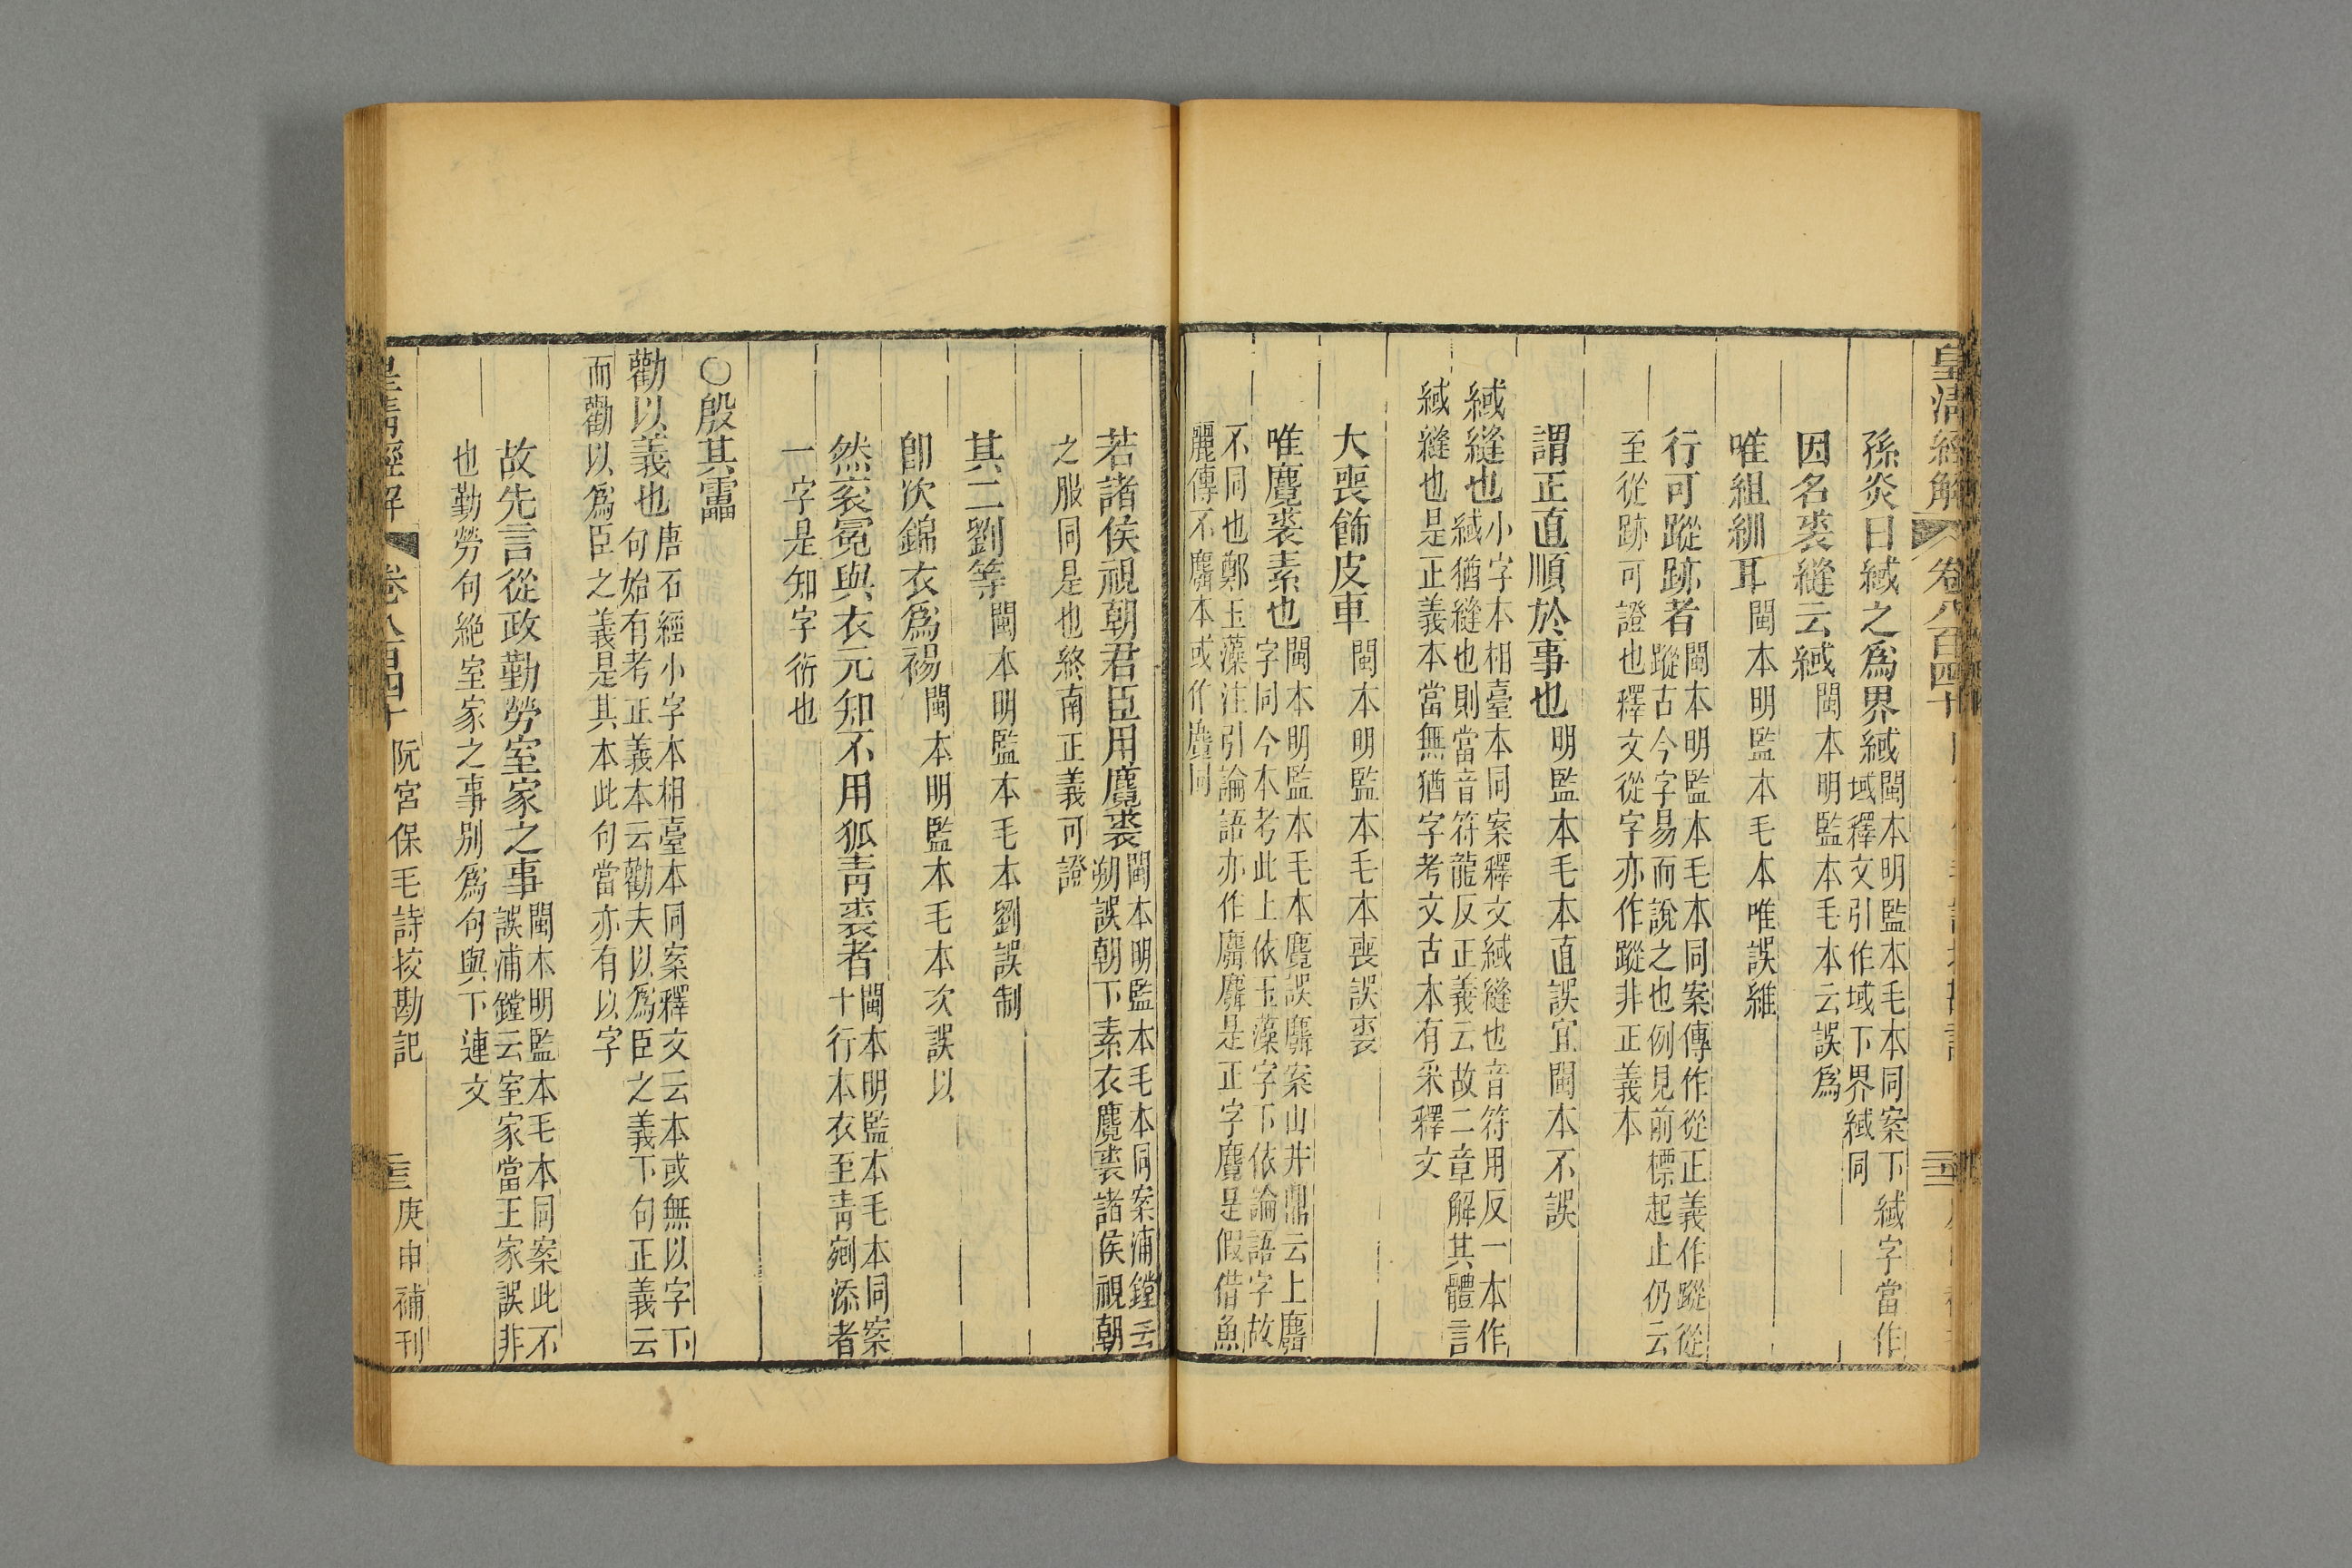 皇清經解 卷八百四十
孫炎曰緎之爲界緎閩本明監本毛本同案下緎字當作
域釋文引作域下界緎同
因名裘縫云緎閩本明監本毛本云誤爲
唯組紃耳閩本明監本毛本唯誤維
行可蹤跡者閩本明監本毛本同案傳作從正義作蹤從
蹤古今字易而說之也例見前標起止仍云
至從跡可證也釋文從字亦作蹤非正義本
謂正直順於事也明監本毛本直誤宜閩本不誤
緎縫也小字本相臺本同案釋文緎縫也音符用反一本作
緎猶縫也則當音符龍反正義云故二章解其體言
緎縫也是正義本當無猶字考文古本有采釋文
大喪飾皮車閩本明監本毛本喪誤裘
唯麛裘素也閩本明監本毛本麛誤麝案山井鼎云上麛
字同今本考此上依玉藻字下依論語字故
不同也鄭玉藻注引論語亦作麛麝是正字麛是假借魚
麗傳不麛本或作麛同
若諸侯視朝君臣用麛裘閩本明監本毛本同案浦鏜云
朔誤朝下素衣麛裘諸侯視朝
之服同是也終南正義可證
其二劉等閩本明監本毛本劉誤制
卽次錦衣爲裼閩本明監本毛本次誤以
然裘冕與衣元知不用狐靑裘者閩本明監本毛本同案
十行本衣至靑剜添者
一字是知字衍也
○殷其靁
勸以義也唐石經小字本相臺本同案釋文云本或無以字下
句始有考正義本云勸夫以爲臣之義下句正義云
而勸以爲臣之義是其本此句當亦有以字
故先言從政勤勞室家之事閩本明監本毛本同案此不
誤浦鏜云室家當王家誤非
也勤勞句絶室家之事別爲句與下連文
皇清經解 卷八百四十 阮宮保毛詩挍勘記 三 庚申補刊